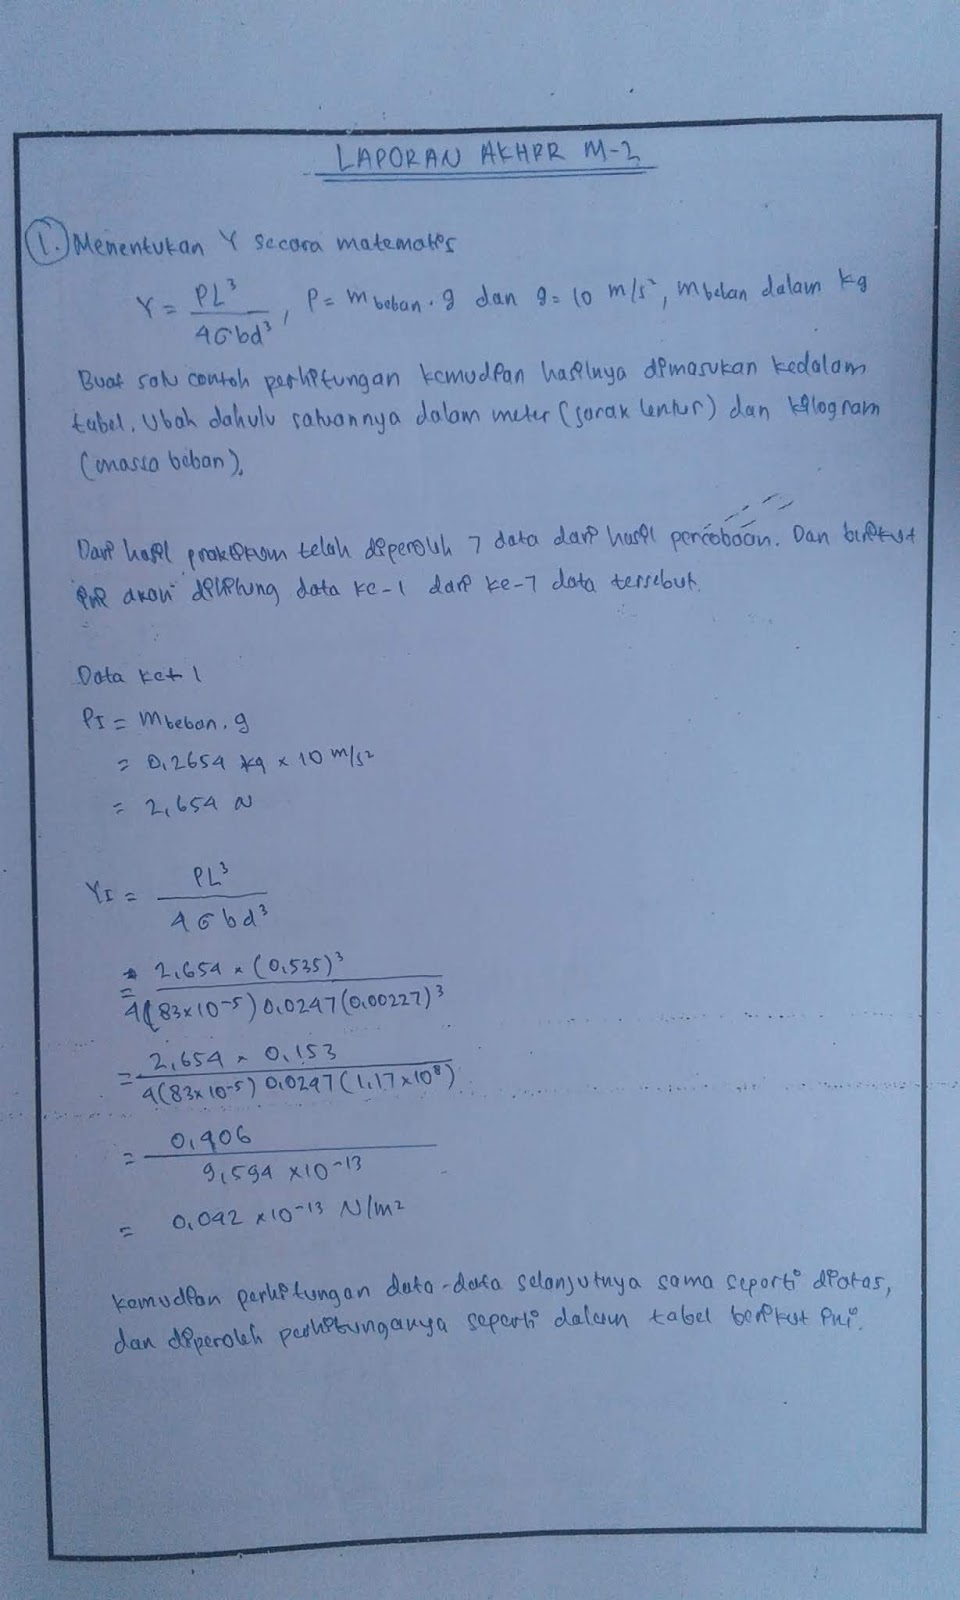 LAPORAN AKHIR M-2
1. Menentukan Y secara matematis
Y = PL³ / 4σbd³ , P = m beban . g dan g = 10 m/s², m beban dalam kg
Buat satu contoh perhitungan kemudian hasilnya dimasukan kedalam
tabel. Ubah dahulu satuannya dalam meter (jarak lentur) dan kilogram
(massa beban).
Dari hasil praktikum telah diperoleh 7 data dari hasil percobaan. Dan berikut
ini akan dihitung data ke-1 dari ke-7 data tersebut.
Data ke+ 1
P_I = m beban . g
= 0,2654 kg × 10 m/s²
= 2,654 N
Y_I = PL³ / 4σbd³
= 2,654 × (0,535)³ / 4(83×10⁻⁵) 0,0247 (0,00227)³
= 2,654 × 0,153 / 4(83×10⁻⁵) 0,0247 (1,17×10⁸)
= 0,406 / 9,594 ×10⁻¹³
= 0,042 ×10⁻¹³ N/m²
kemudian perhitungan data-data selanjutnya sama seperti diatas,
dan diperoleh perhitungannya seperti dalam tabel berikut ini.